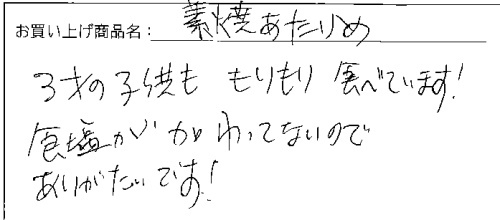 お買い上げ商品名：素焼あたりめ
3才の子供も もりもり 食べています!
食塩がかわってないので
ありがたいです!